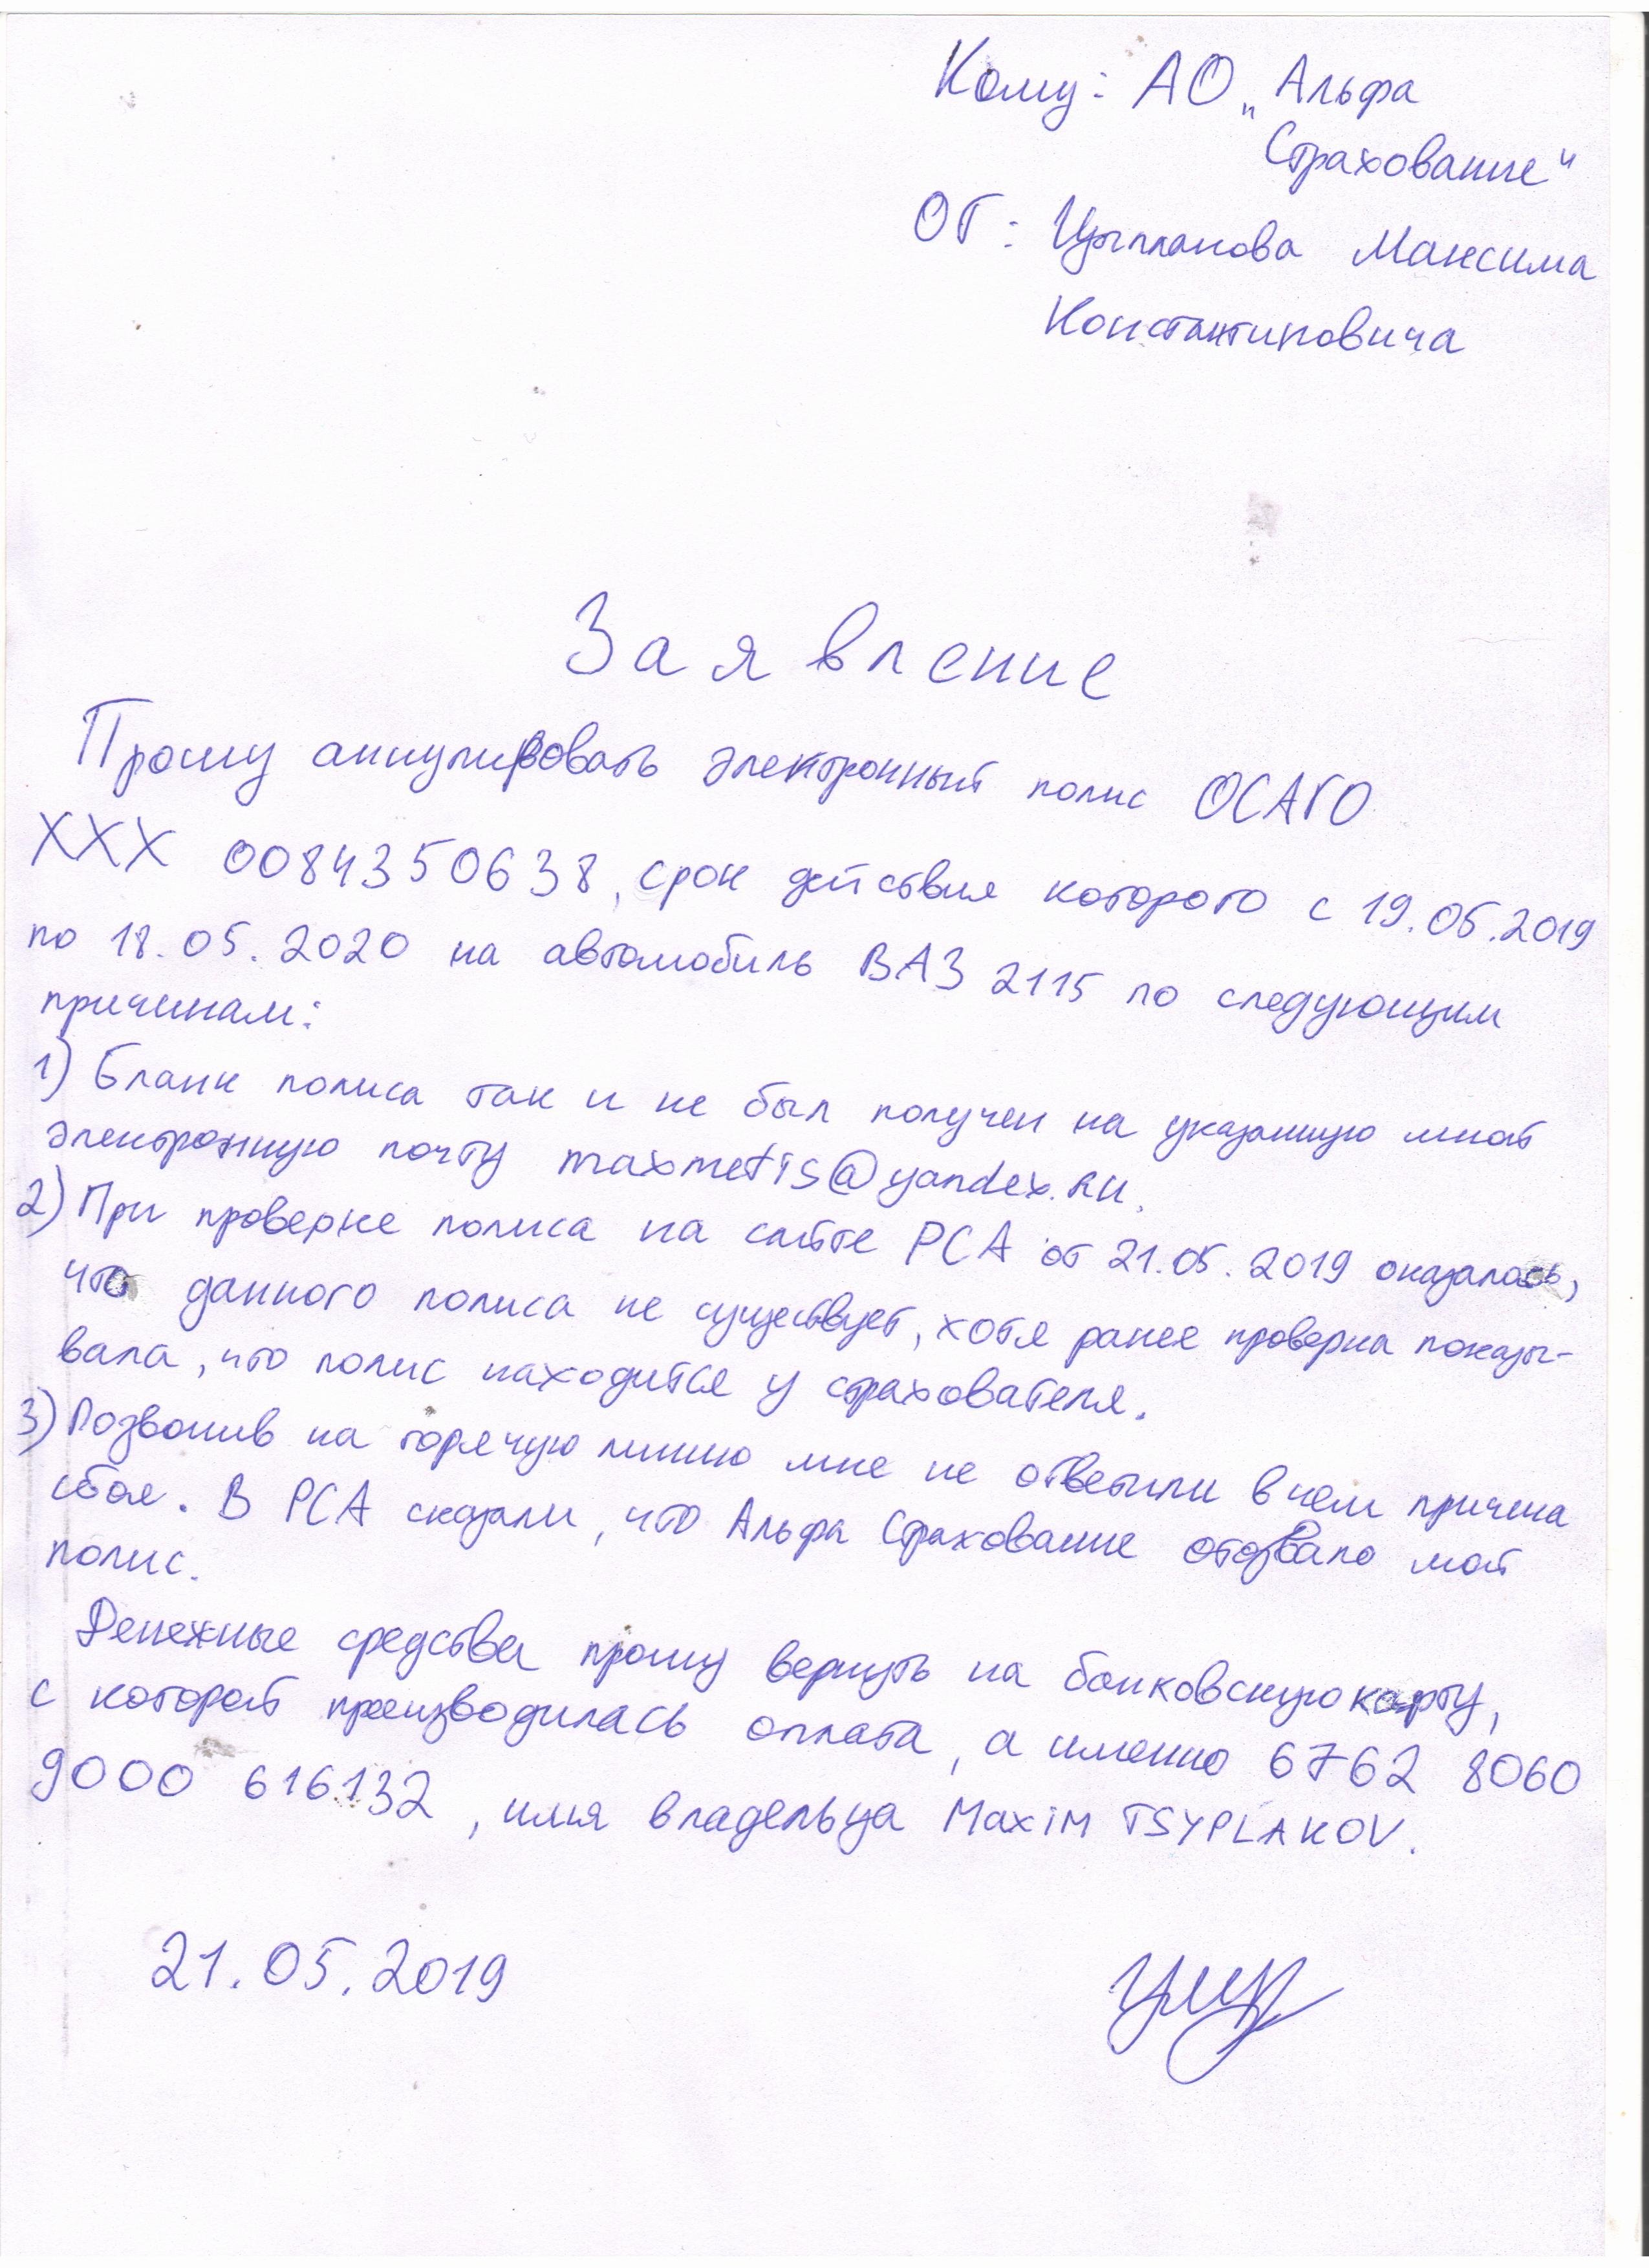 Кому: АО „Альфа
Страхование"
От: Цыплакова Максима
Константиновича
Заявление
Прошу аннулировать электронный полис ОСАГО
ХХХ 0084350638, срок действия которого с 19.05.2019
по 18.05.2020 на автомобиль ВАЗ 2115 по следующим
причинам:
1) Бланк полиса так и не был получен на указанную мной
электронную почту maxmetis@yandex.ru.
2) При проверке полиса на сайте РСА от 21.05.2019 оказалось,
что данного полиса не существует, хотя ранее проверка показы-
вала, что полис находится у страхователя.
3) Позвонив на горячую линию мне не ответили в чем причина
сбоя. В РСА сказали, что Альфа Страхование отозвало мой
полис.
Денежные средства прошу вернуть на банковскую карту,
с которой производилась оплата, а именно 6762 8060
9000 616132, имя владельца Maxim TSYPLAKOV.
21.05.2019